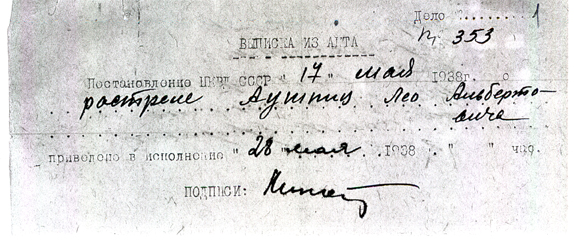 Дело №.......1
Пр. 353
ВЫПИСКА ИЗ АКТА
Постановление НКВД СССР "17" мая 1938г. о
расстреле Аушпиц Лео Альберто-
вича
приведено в исполнение "28" мая 1938 " " час.
ПОДПИСИ: